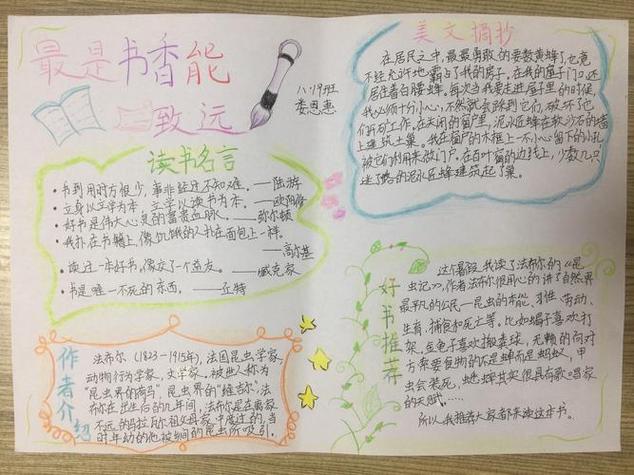 最是书香能
致远
八.19班
娄恩惠
读书名言
·书到用时方恨少,事非经过不知难。——陆游
·立身以立学为本,立学以读书为本。——欧阳修
·好书是伟大心灵的富贵血脉。——弥尔顿
·我扑在书籍上,像饥饿的人扑在面包上一样。
——高尔基
·读过一本好书,像交了一个益友。——臧克家
·书是唯一不死的东西。——丘特
作者介绍
法布尔(1823-1915年),法国昆虫学家,
动物行为学家,文学家。被世人称为
"昆虫界的荷马",昆虫界的"维吉尔"。法
布尔在出生后的几年间,法布尔是在离家
不远的马拉瓦尔祖父母家中度过的,当
时年幼的他被
的昆虫所吸引。
美文摘抄
在居民之中,最最勇敢的要数黄蜂了,也竟
不经允许地霸占了我的房子,在我的屋子门口,还
居住着白腰蜂。每次当我要走进屋子里的时候,
我必须十分小心,不然就会踩到它们,破坏了它
们
工作。在关闭的窗户里,泥水匠蜂在软沙石的墙
上建筑土巢。我在窗户的木框上一不小心留下的小孔
被它们利用来做门户。在百叶窗的边线上,少数几只
迷了路的泥水匠蜂建筑起了巢。
好书推荐
这个暑假,我读了法布尔的《昆
虫记》,作者法布尔很用心的讲了自然界
最平凡的公民—昆虫的本能、习性、劳动、
生育、捕包和死亡等。比如蝎子喜欢打
架,金龟子喜欢搬粪球,
的
方索要食物的不是蝉而是蚂蚁,甲
虫会装死,蟋蟀其实很具有歌唱家
的天赋……
所以我推荐大家都来读这本书。